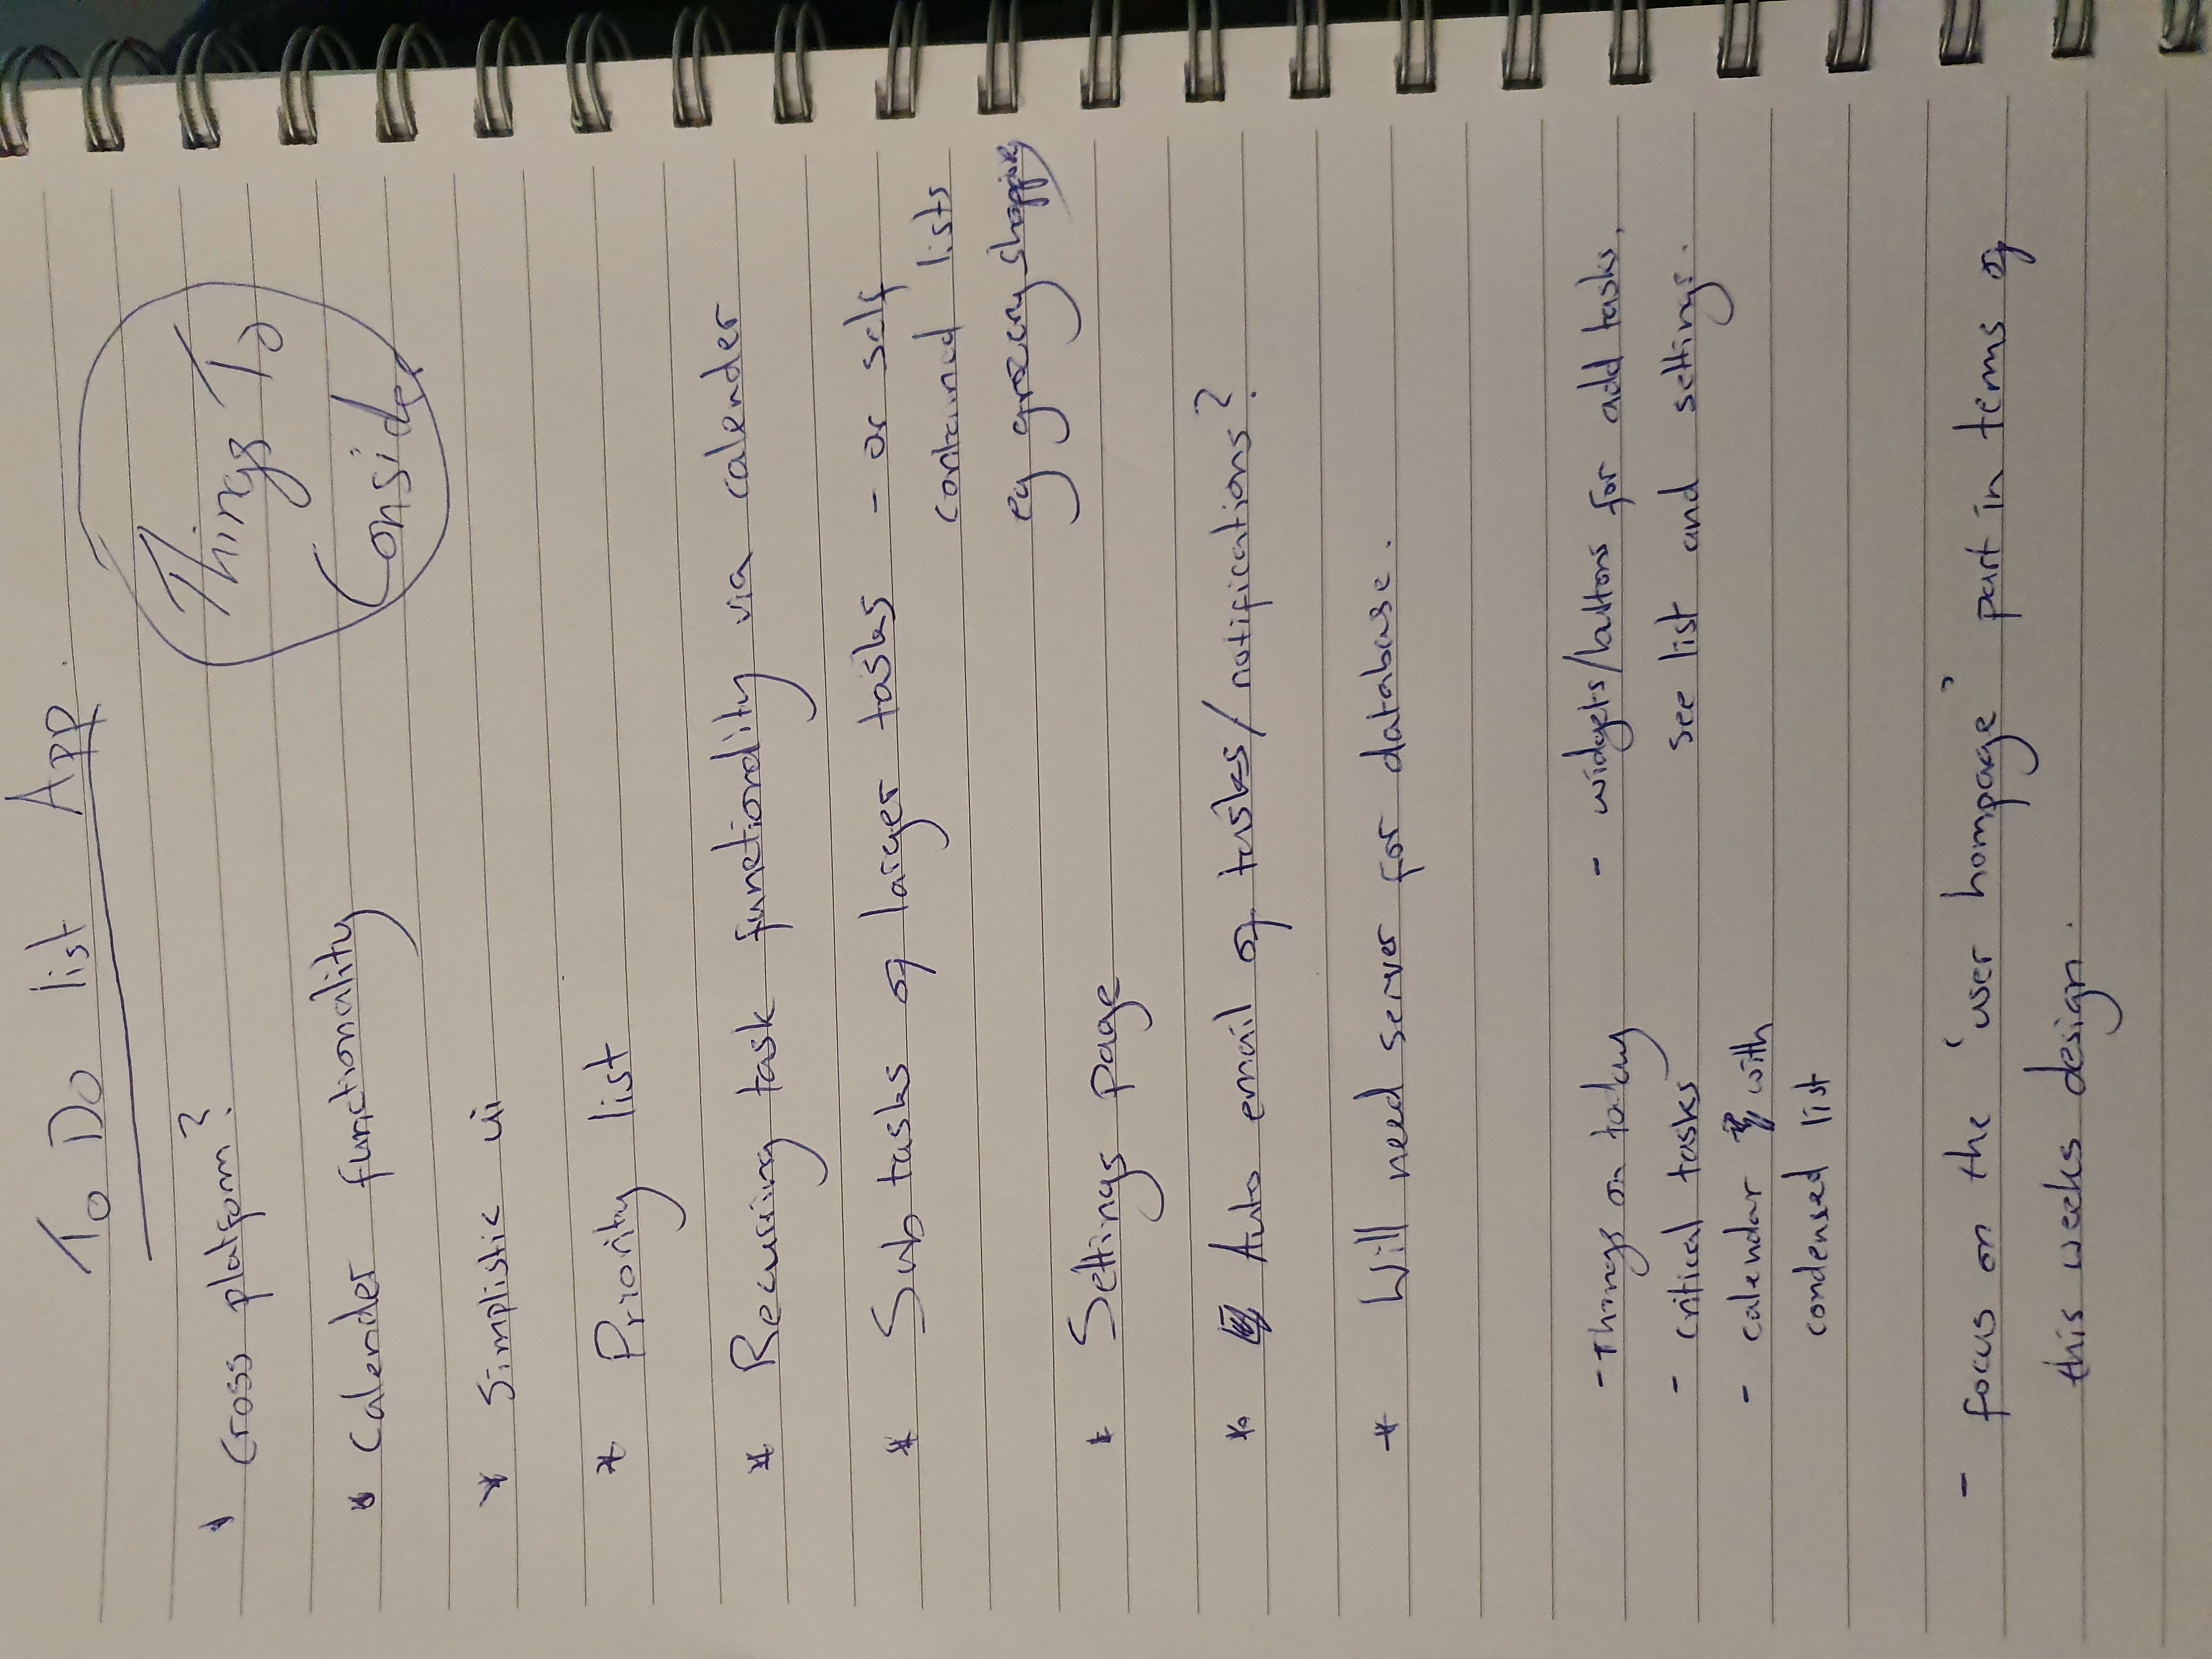 To Do list App.
Things To
Consider
* cross platform?
* Calender functionality
* Simplistic ui
* Priority list
* Recurring task functionality via calender
* Sub tasks of larger tasks - or self
contained lists
eg grocery shopping
* Settings page
* Auto email of tasks/notifications?
* Will need server for database.
- Things on today
- critical tasks
- calendar with
condensed list
- widgets/buttons for add tasks,
see list and settings.
- focus on the 'user hompage' part in terms of
this weeks design.